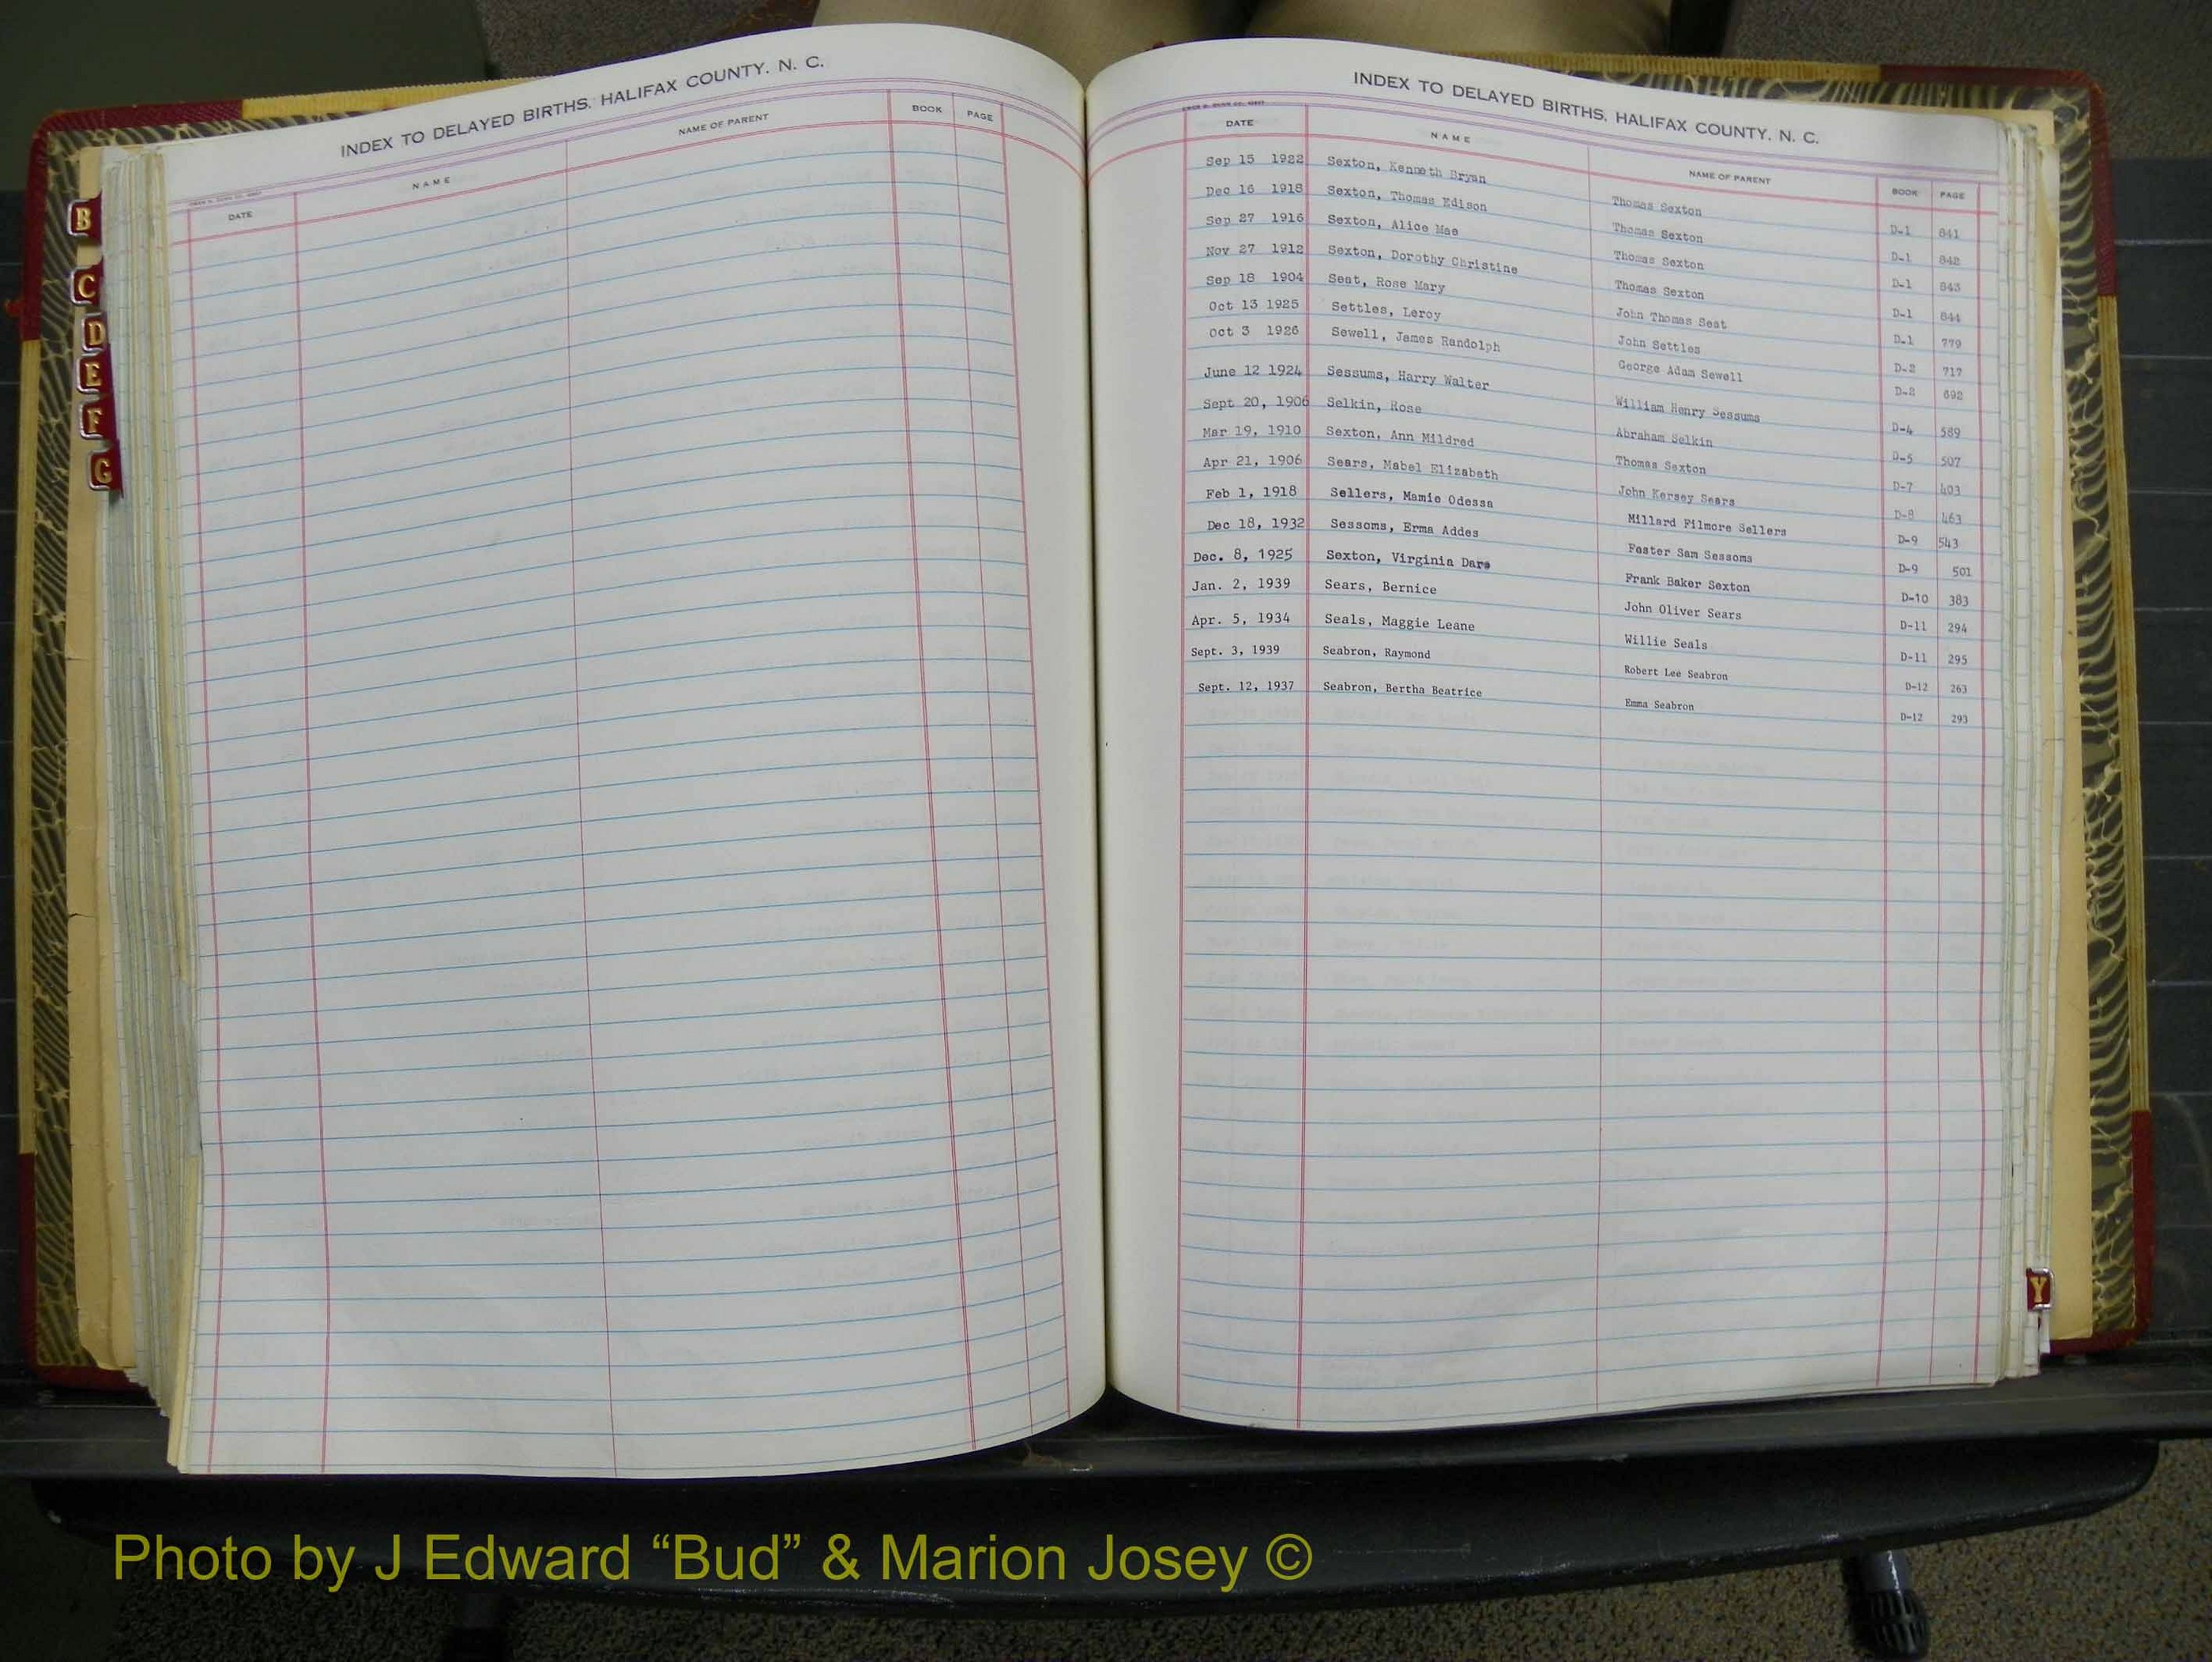 INDEX TO DELAYED BIRTHS, HALIFAX COUNTY, N. C.
DATE NAME NAME OF PARENT BOOK PAGE
B
C
D
E
F
G
INDEX TO DELAYED BIRTHS, HALIFAX COUNTY, N. C.
DATE NAME NAME OF PARENT BOOK PAGE
Sep 15 1922 Sexton, Kenneth Bryan Thomas Sexton D-1 841
Dec 16 1918 Sexton, Thomas Edison Thomas Sexton D-1 842
Sep 27 1916 Sexton, Alice Mae Thomas Sexton D-1 843
Nov 27 1912 Sexton, Dorothy Christine Thomas Sexton D-1 844
Sep 18 1904 Seat, Rose Mary John Thomas Seat D-1 779
Oct 13 1925 Settles, Leroy John Settles D-2 717
Oct 3 1926 Sewell, James Randolph George Adam Sewell D-2 692
June 12 1924 Sessums, Harry Walter William Henry Sessums D-4 589
Sept 20, 1906 Selkin, Rose Abraham Selkin D-5 507
Mar 19, 1910 Sexton, Ann Mildred Thomas Sexton D-7 403
Apr 21, 1906 Sears, Mabel Elizabeth John Kersey Sears D-8 463
Feb 1, 1918 Sellers, Mamie Odessa Millard Filmore Sellers D-9 543
Dec 18, 1932 Sessoms, Erma Addes Foster Sam Sessoms D-9 501
Dec. 8, 1925 Sexton, Virginia Dare Frank Baker Sexton D-10 383
Jan. 2, 1939 Sears, Bernice John Oliver Sears D-11 294
Apr. 5, 1934 Seals, Maggie Leane Willie Seals D-11 295
Sept. 3, 1939 Seabron, Raymond Robert Lee Seabron D-12 263
Sept. 12, 1937 Seabron, Bertha Beatrice Emma Seabron D-12 293
Y
Photo by J Edward “Bud” & Marion Josey ©